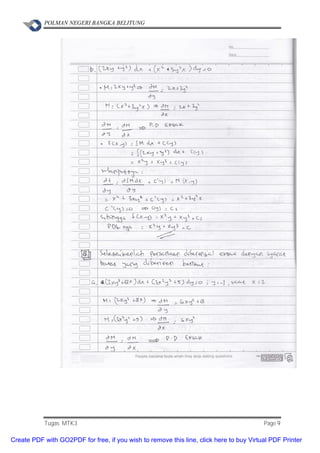 POLMAN NEGERI BANGKA BELITUNG
No.
Date.
b. (2xy + y³) dx + (x² + 3y²x) dy = 0
• M = 2xy + y³ ⇒ ∂M/∂y = 2x + 3y²
N = (x² + 3y²x) ⇒ ∂M/∂x = 2x + 3y²
∂M/∂y = ∂M/∂x ⇒ P.D Eksak
• F(x,y) = ∫M dx + C(y)
= ∫(2xy + y³) dx + C(y)
= x²y + xy³ + C(y)
∂f/∂y = ∂∫M dx/∂y + C'(y) = N(x,y)
= x² + 3xy² + C'(y) = x² + 3y²x
C'(y) = 0 ⇒ C(y) = C₁
Sehingga f(x,y) = x²y + xy³ + C₁
PDE nya = x²y + xy³ = C
Selesaikanlah Persamaan diferensial eksak dengan syarat
batas yang diberikan berikut :
M = (2xy³ + 8x) ⇒ ∂M/∂y = 6xy² + 8
N = (3x²y² + 5) ⇒ ∂M/∂x = 6xy²
∂M/∂y = ∂M/∂x ⇒ P.D Eksak
People become bore when they stop asking questions
Tugas MTK3 Page 9
Create PDF with GO2PDF for free, if you wish to remove this line, click here to buy Virtual PDF Printer